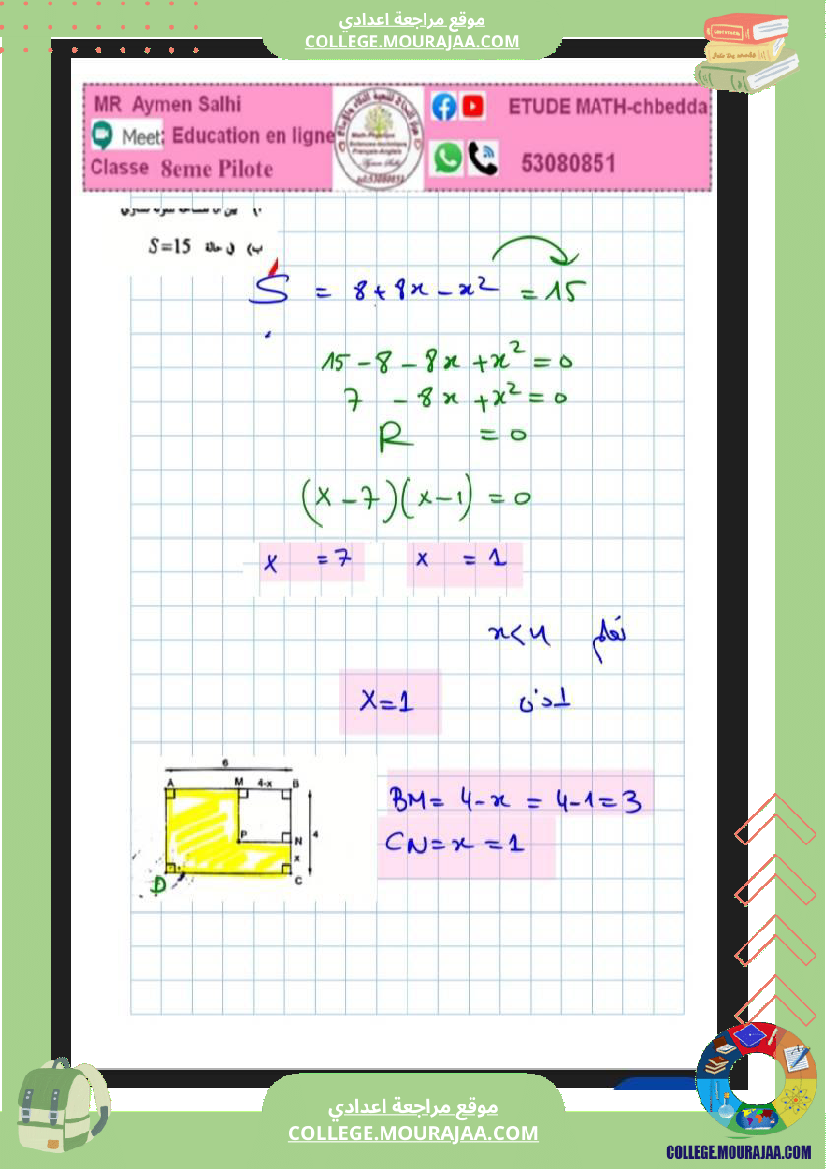 موقع مراجعة اعدادي
COLLEGE.MOURAJAA.COM
MR Aymen Salhi
Meet: Education en ligne
Classe 8eme Pilote
ETUDE MATH-chbedda
53080851
ب) في حالة S=15
S = 8 + 8x - x² = 15
15 - 8 - 8x + x² = 0
7 - 8x + x² = 0
R = 0
(x - 7)(x - 1) = 0
x = 7 x = 1
x=1 اذن
6
A M 4-x B
P N 4
x
D C
BM = 4 - x = 4 - 1 = 3
CN = x = 1
موقع مراجعة اعدادي
COLLEGE.MOURAJAA.COM
COLLEGE.MOURAJAA.COM